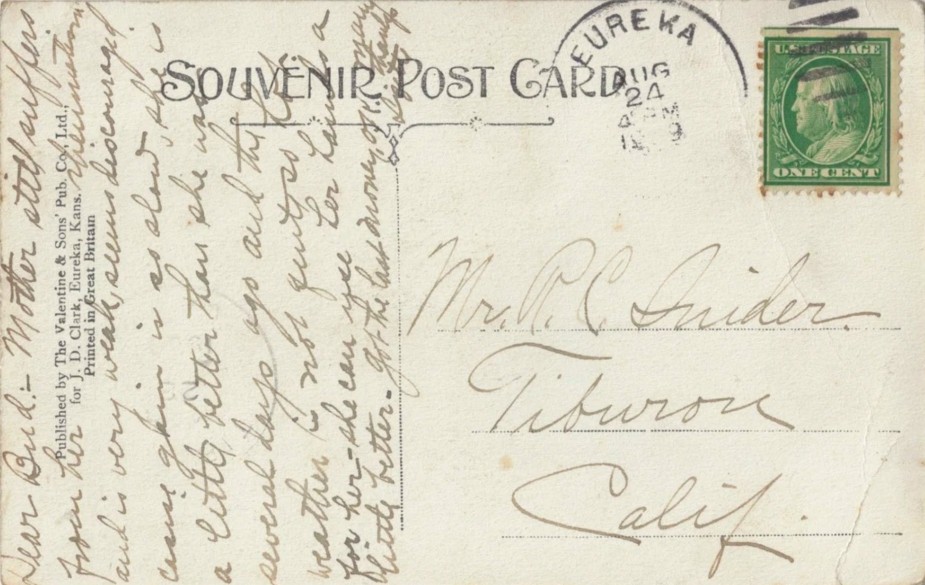 SOUVENIR POST CARD
EUREKA
AUG
24
U.S. POSTAGE
ONE CENT
Published by The Valentine & Sons' Pub. Co., Ltd.,
for J. D. Clark, Eureka, Kans.
Printed in Great Britain
Dear Bud:- Mother still suffers
from her rheumatism
and is very weak, seems discouraged
cause gain is so slow, she is
a little better than she was
several days ago and this hot
weather is no
for her - she can use her hands a
little better - Got the last money O.K. many
thanks
Mr. R. C. Snider.
Tiburon
Calif.